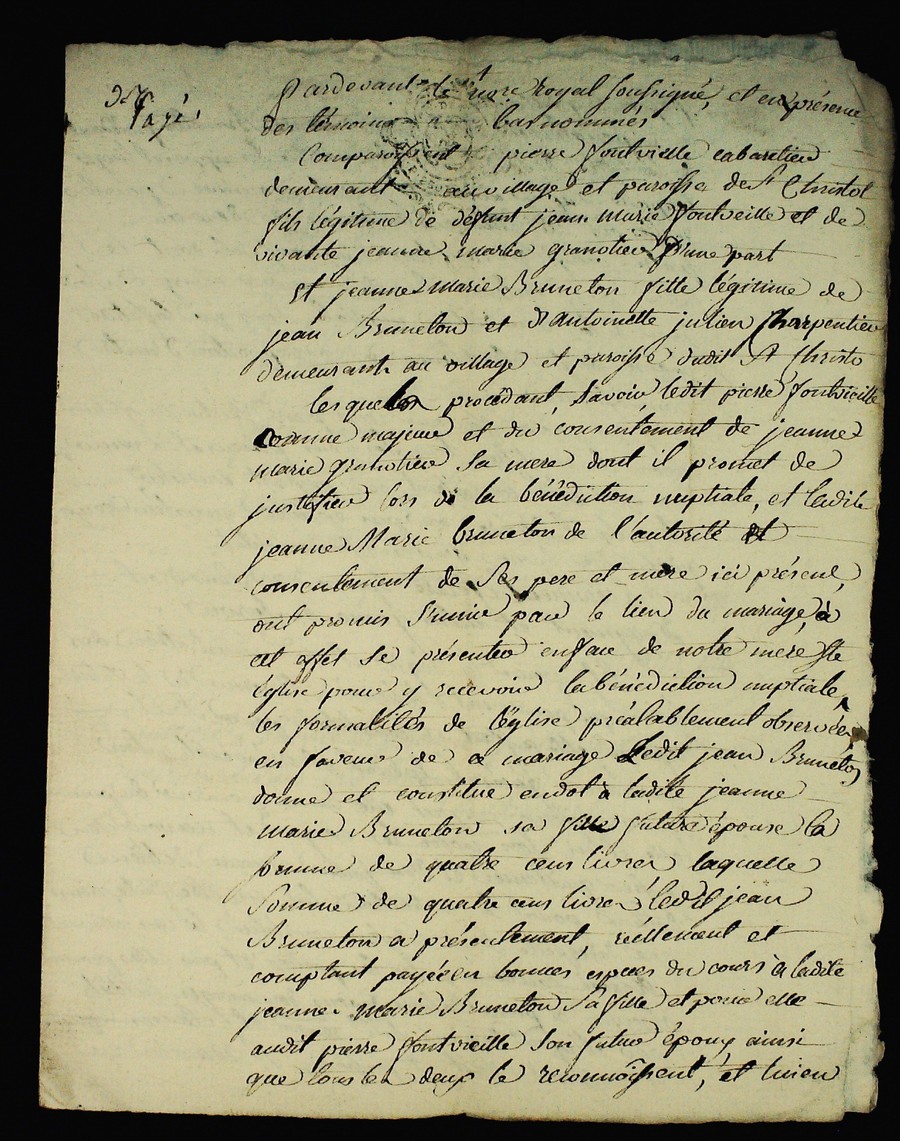 payé
Pardevant le nore Royal soussigné, et en présence
des témoins bas nommés
Comparoissent pierre fontvielle cabaretier
demeurant au village et paroisse de St Christol
fils légitime de défunt jean marie fontvieille et de
vivante jeanne marie granotier d'une part
Et jeanne marie Bruneton fille légitime de
jean Bruneton et d'antoinette julien Charpentier
demeurant au village et paroisse dudit St Christo
lesquels procédant, savoir, ledit pierre fontvieille
comme majeur et du consentement de jeanne
marie granotier sa mere dont il promet de
justifier lors de la bénédiction nuptiale, et ladite
jeanne Marie bruneton de l'autorité et
consentement de ses pere et mere ici présent,
ont promis s'unir par le lien du mariage, à
cet effet se présenter en face de notre mere Ste
église pour y recevoir la bénédiction nuptiale,
les formalités de l'église préalablement observées,
en faveur de ce mariage Ledit jean Bruneton
donne et constitue en dot à ladite jeanne
marie Bruneton sa fille future épouse la
somme de quatre cens livres laquelle
somme de quatre cens livres ledit jean
Bruneton a présentement, réellement et
comptant payée en bonnes espèces du cours à ladite
jeanne marie Bruneton sa fille et pour elle
audit pierre fontvieille son futur époux ainsi
que tous les deux le reconnoissent, et l'en